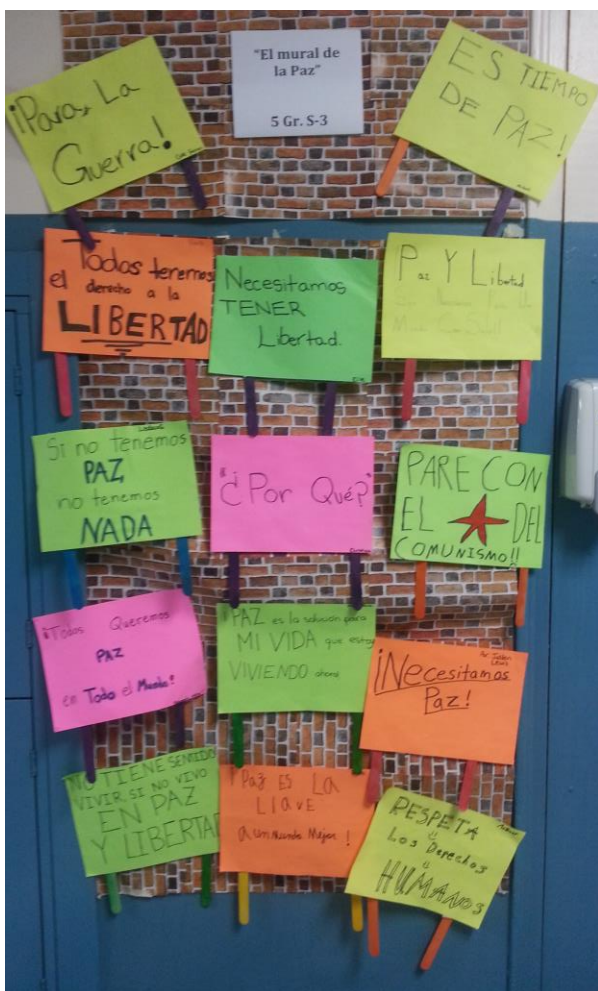 "El mural de
la Paz"
5 Gr. S-3
¡Para, La
Guerra!
ES TIEMPO
DE PAZ!
Todos tenemos
el derecho a la
LIBERTAD
Necesitamos
TENER
Libertad.
Paz Y Libertad
Si no tenemos
PAZ,
no tenemos
NADA
"¿Por Qué?"
PARE CON
EL DEL
COMUNISMO!!
¡Todos Queremos
PAZ
en Todo el Mundo!
¡PAZ es la solución para
MI VIDA que estoy
VIVIENDO ahora
¡Necesitamos
Paz!
NO TIENE SENTIDO
VIVIR SI NO VIVO
EN PAZ
Y LIBERTAD
¡Paz ES LA
LlavE
a un Mundo Mejor!
RESPETA
Los Derechos
HUMANOS